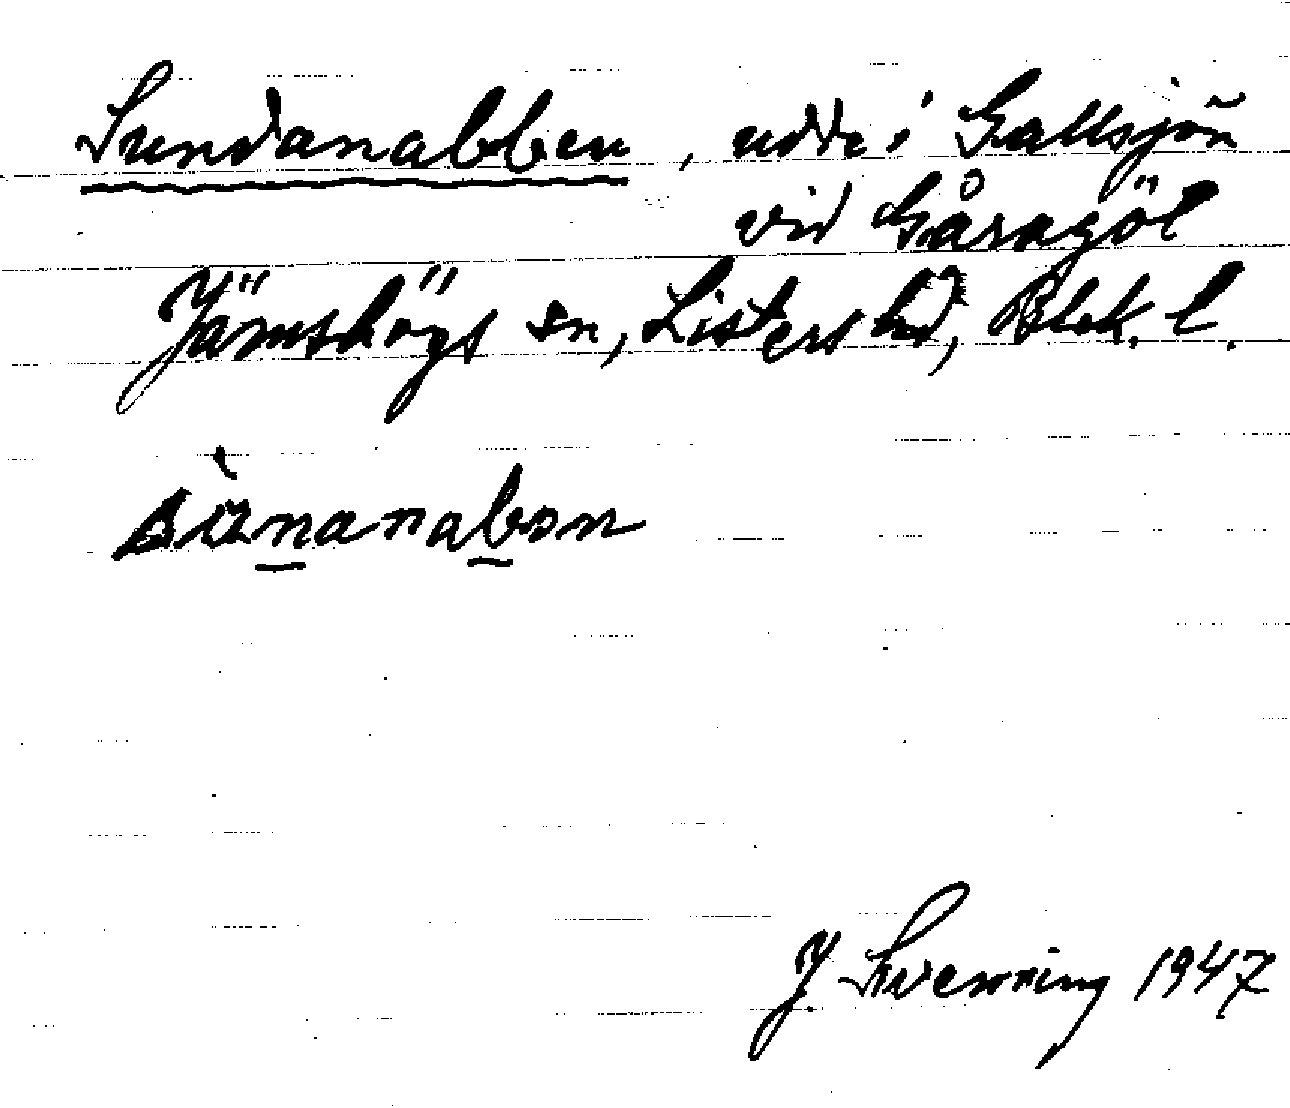 Sundanabben, udde i Gallsjön
vid Gåragöl
Jämshögs sn, Listers hd, Blek. l.
J. Svenning 1947